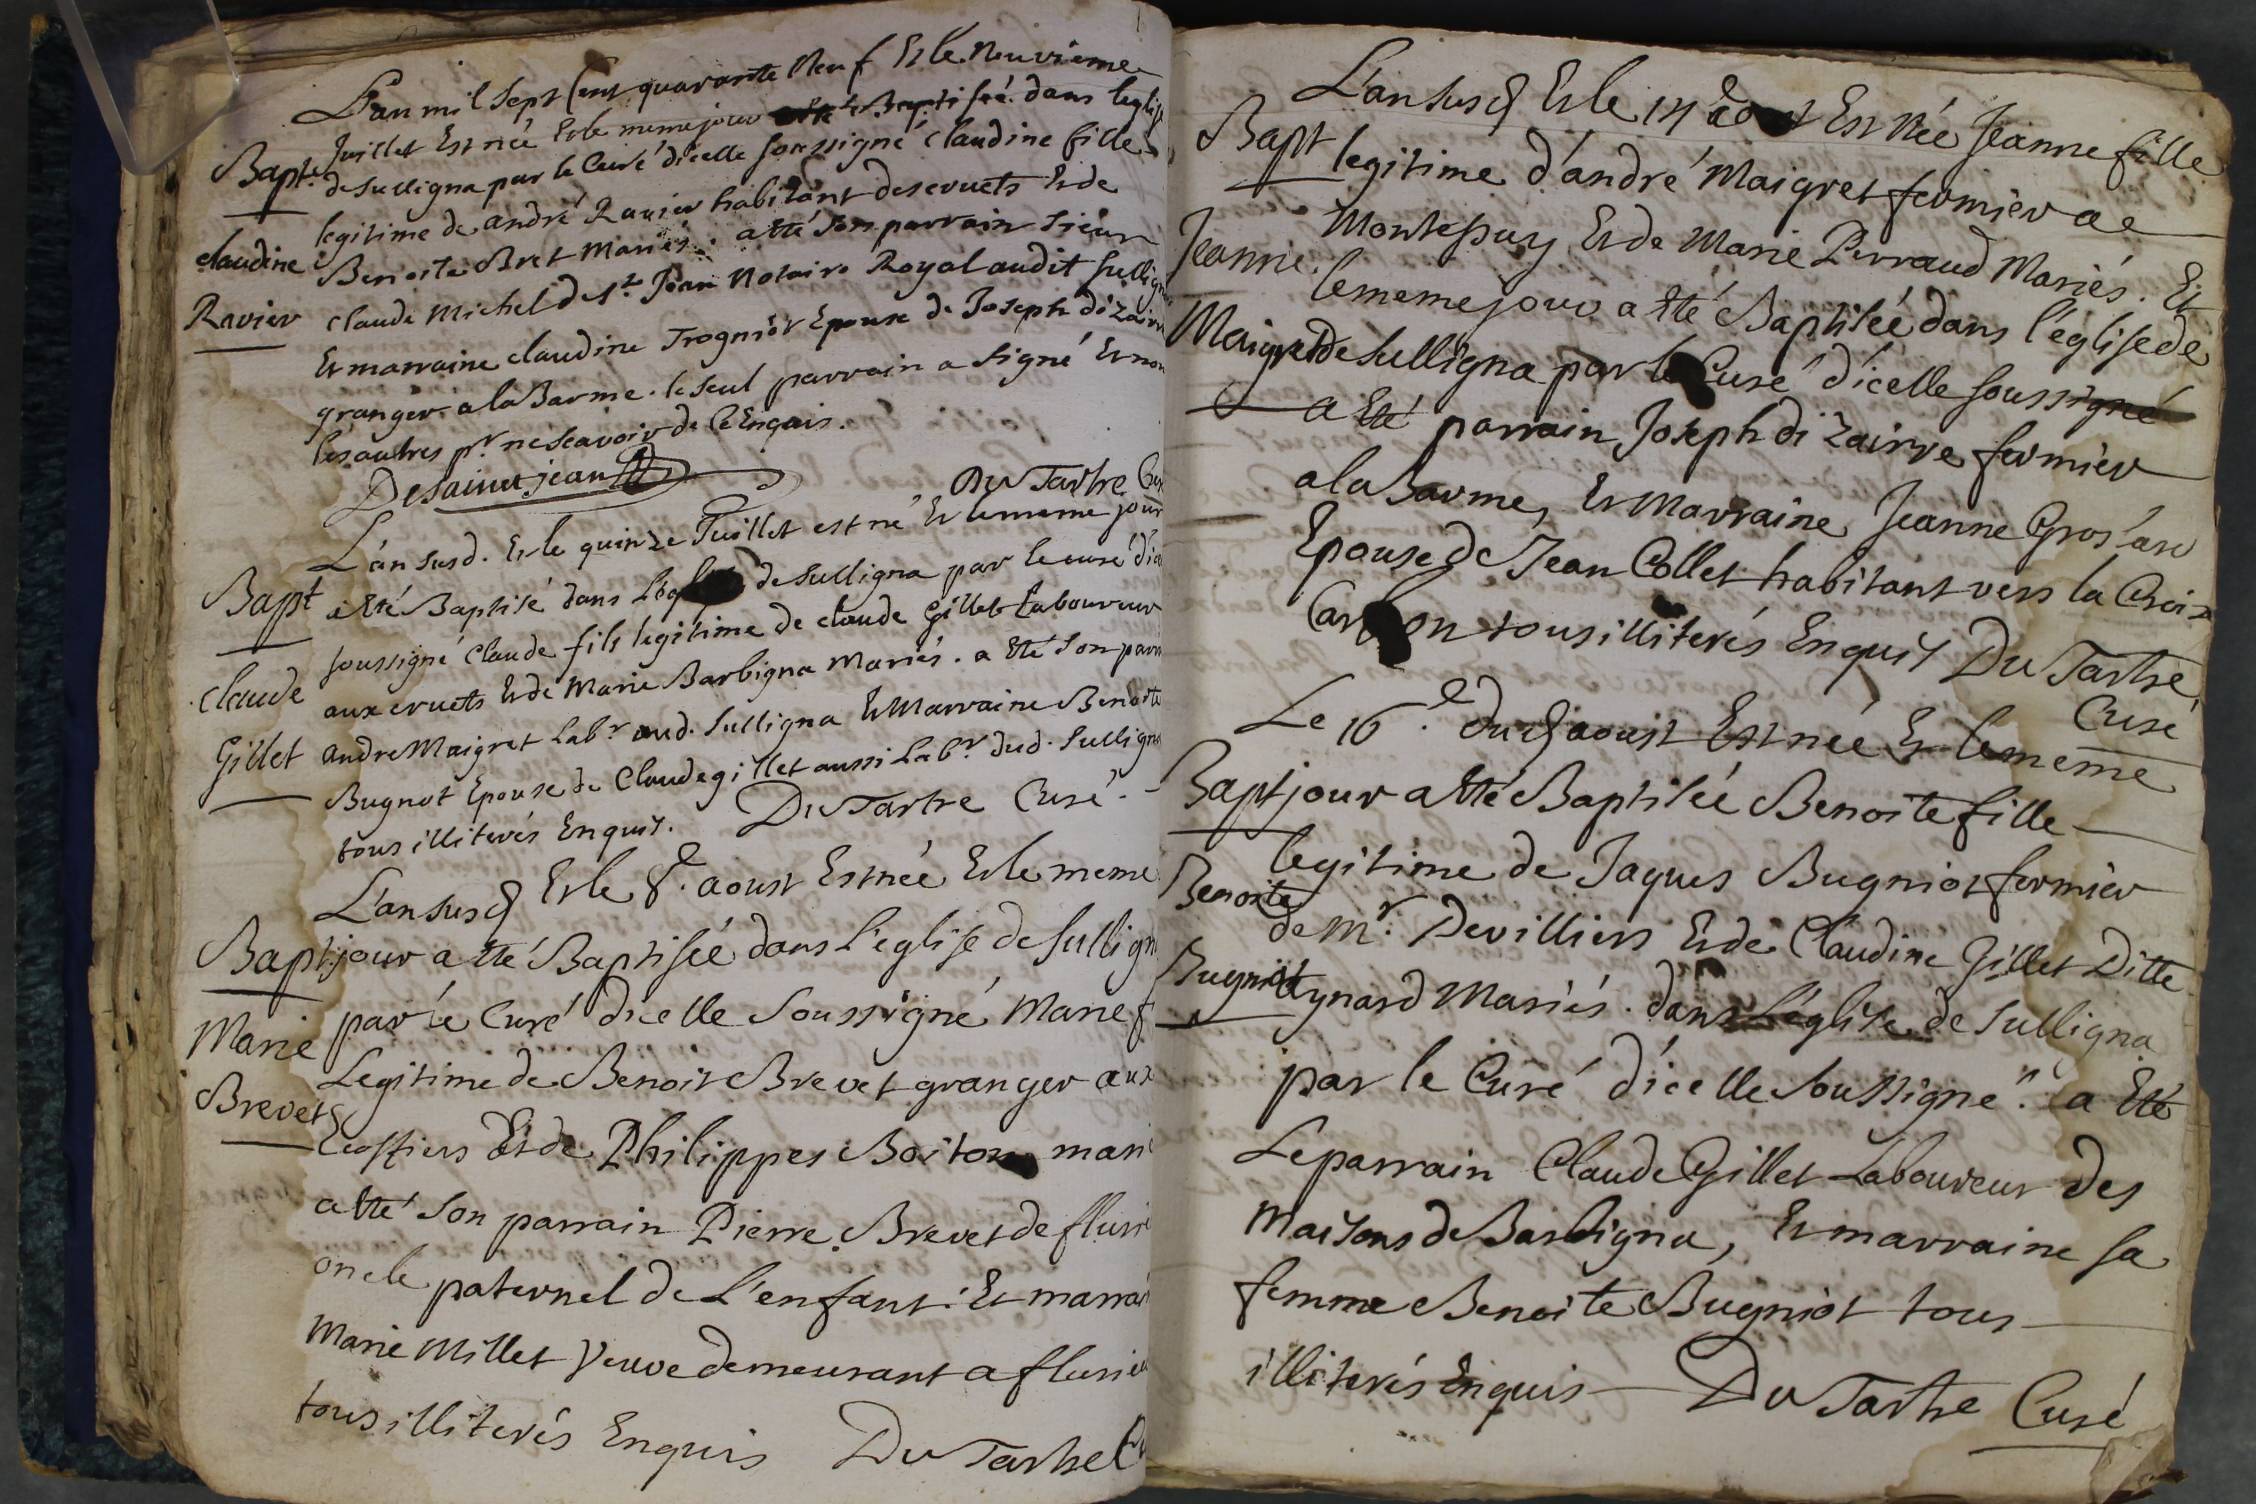 L'an mil sept cent quarante neuf Et le Neuvieme
Juillet Est née Et le meme jour Baptisée dans l'eglise
Bapt. de Sulligna par le Curé d'icelle soussigné Claudine fille
legitime de andré Ravier habitant des cruets Et de
claudine Benoite Bret Mariés. a Eté son parrain Sieur
Ravier claude Michel de St. Jean Notaire Royal audit Sulligna
Et marraine claudine Trogniot Epouse de Joseph dizairre
granger a la Barme. le seul parrain a signé Et non
les autres pr. ne scavoir de ce Enquis.
Desaintjean Du Tartre Curé
L'an susd. Et le quinze Juillet est né Et le meme jour
Bapt a Eté Baptisé dans l'eglise de Sulligna par le curé d'ice
soussigné Claude fils legitime de claude Gillet Laboureur
claude aux cruets Et de Marie Barbigna Mariés. a Eté son parr
Gillet andre Maigret Labr. aud. Sulligna Et Marraine Benoite
Bugnot Epouse de Claude gillet aussi Labr. dud. Sulligna
tous illiterés Enquis. Du Tartre Curé
L'an susd Et le 8e. aoust Est née Et le meme
Bapt. jour a Eté Baptisée dans L'eglise de Sullign
Marie par le Curé d'icelle Soussigné Marie f
Legitime de Benoit Brevet granger aux
Brevet Ecossiers Et de Philippes Boiton mari
a Eté Son parrain Pierre Brevet de flurie
oncle paternel de L'enfant. Et marrai
Marie Millet Veuve demeurant a flurieu
tous illiterés Enquis Du Tartre Cu
L'an susd Et le 14 aoust Est née Jeanne fille
Bapt legitime d'andré Maigret fermier de
Montessuy Et de Marie Perraud Mariés. Et
Jeanne. le meme jour a Eté Baptisée dans l'église de
Maigret de Sulligna par le Curé d'icelle soussigné
a Eté parrain Joseph dizairre fermier
a la Barme, Et Marraine Jeanne
Epouse de Jean Collet habitant vers la Croix
tous illiterés Enquis Du Tartre
Curé
Le 16.e dud aoust Est née Et le meme
Bapt jour a Eté Baptisée Benoite fille
legitime de Jaques Bugniot fermier
Benoite de Mr. Devilliers Et de Claudine Gillet Ditte
Bugniot aynard Mariés. dans L'église de Sulligna
par le Curé d'icelle Soussigné. a Eté
Le parrain Claude Gillet Laboureur des
Maisons de Barbigna, Et marraine sa
femme Benoite Bugniot tous
illiterés Enquis Du Tartre Curé